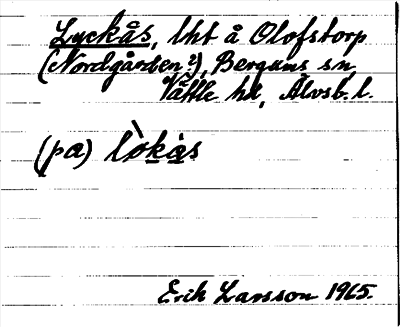 Lyckås, lht å Olofstorp
(Nordgården 2), Bergums sn,
Vättle hd, Älvsb. l.
(pa) lòkàs
Erik Larsson 1965.